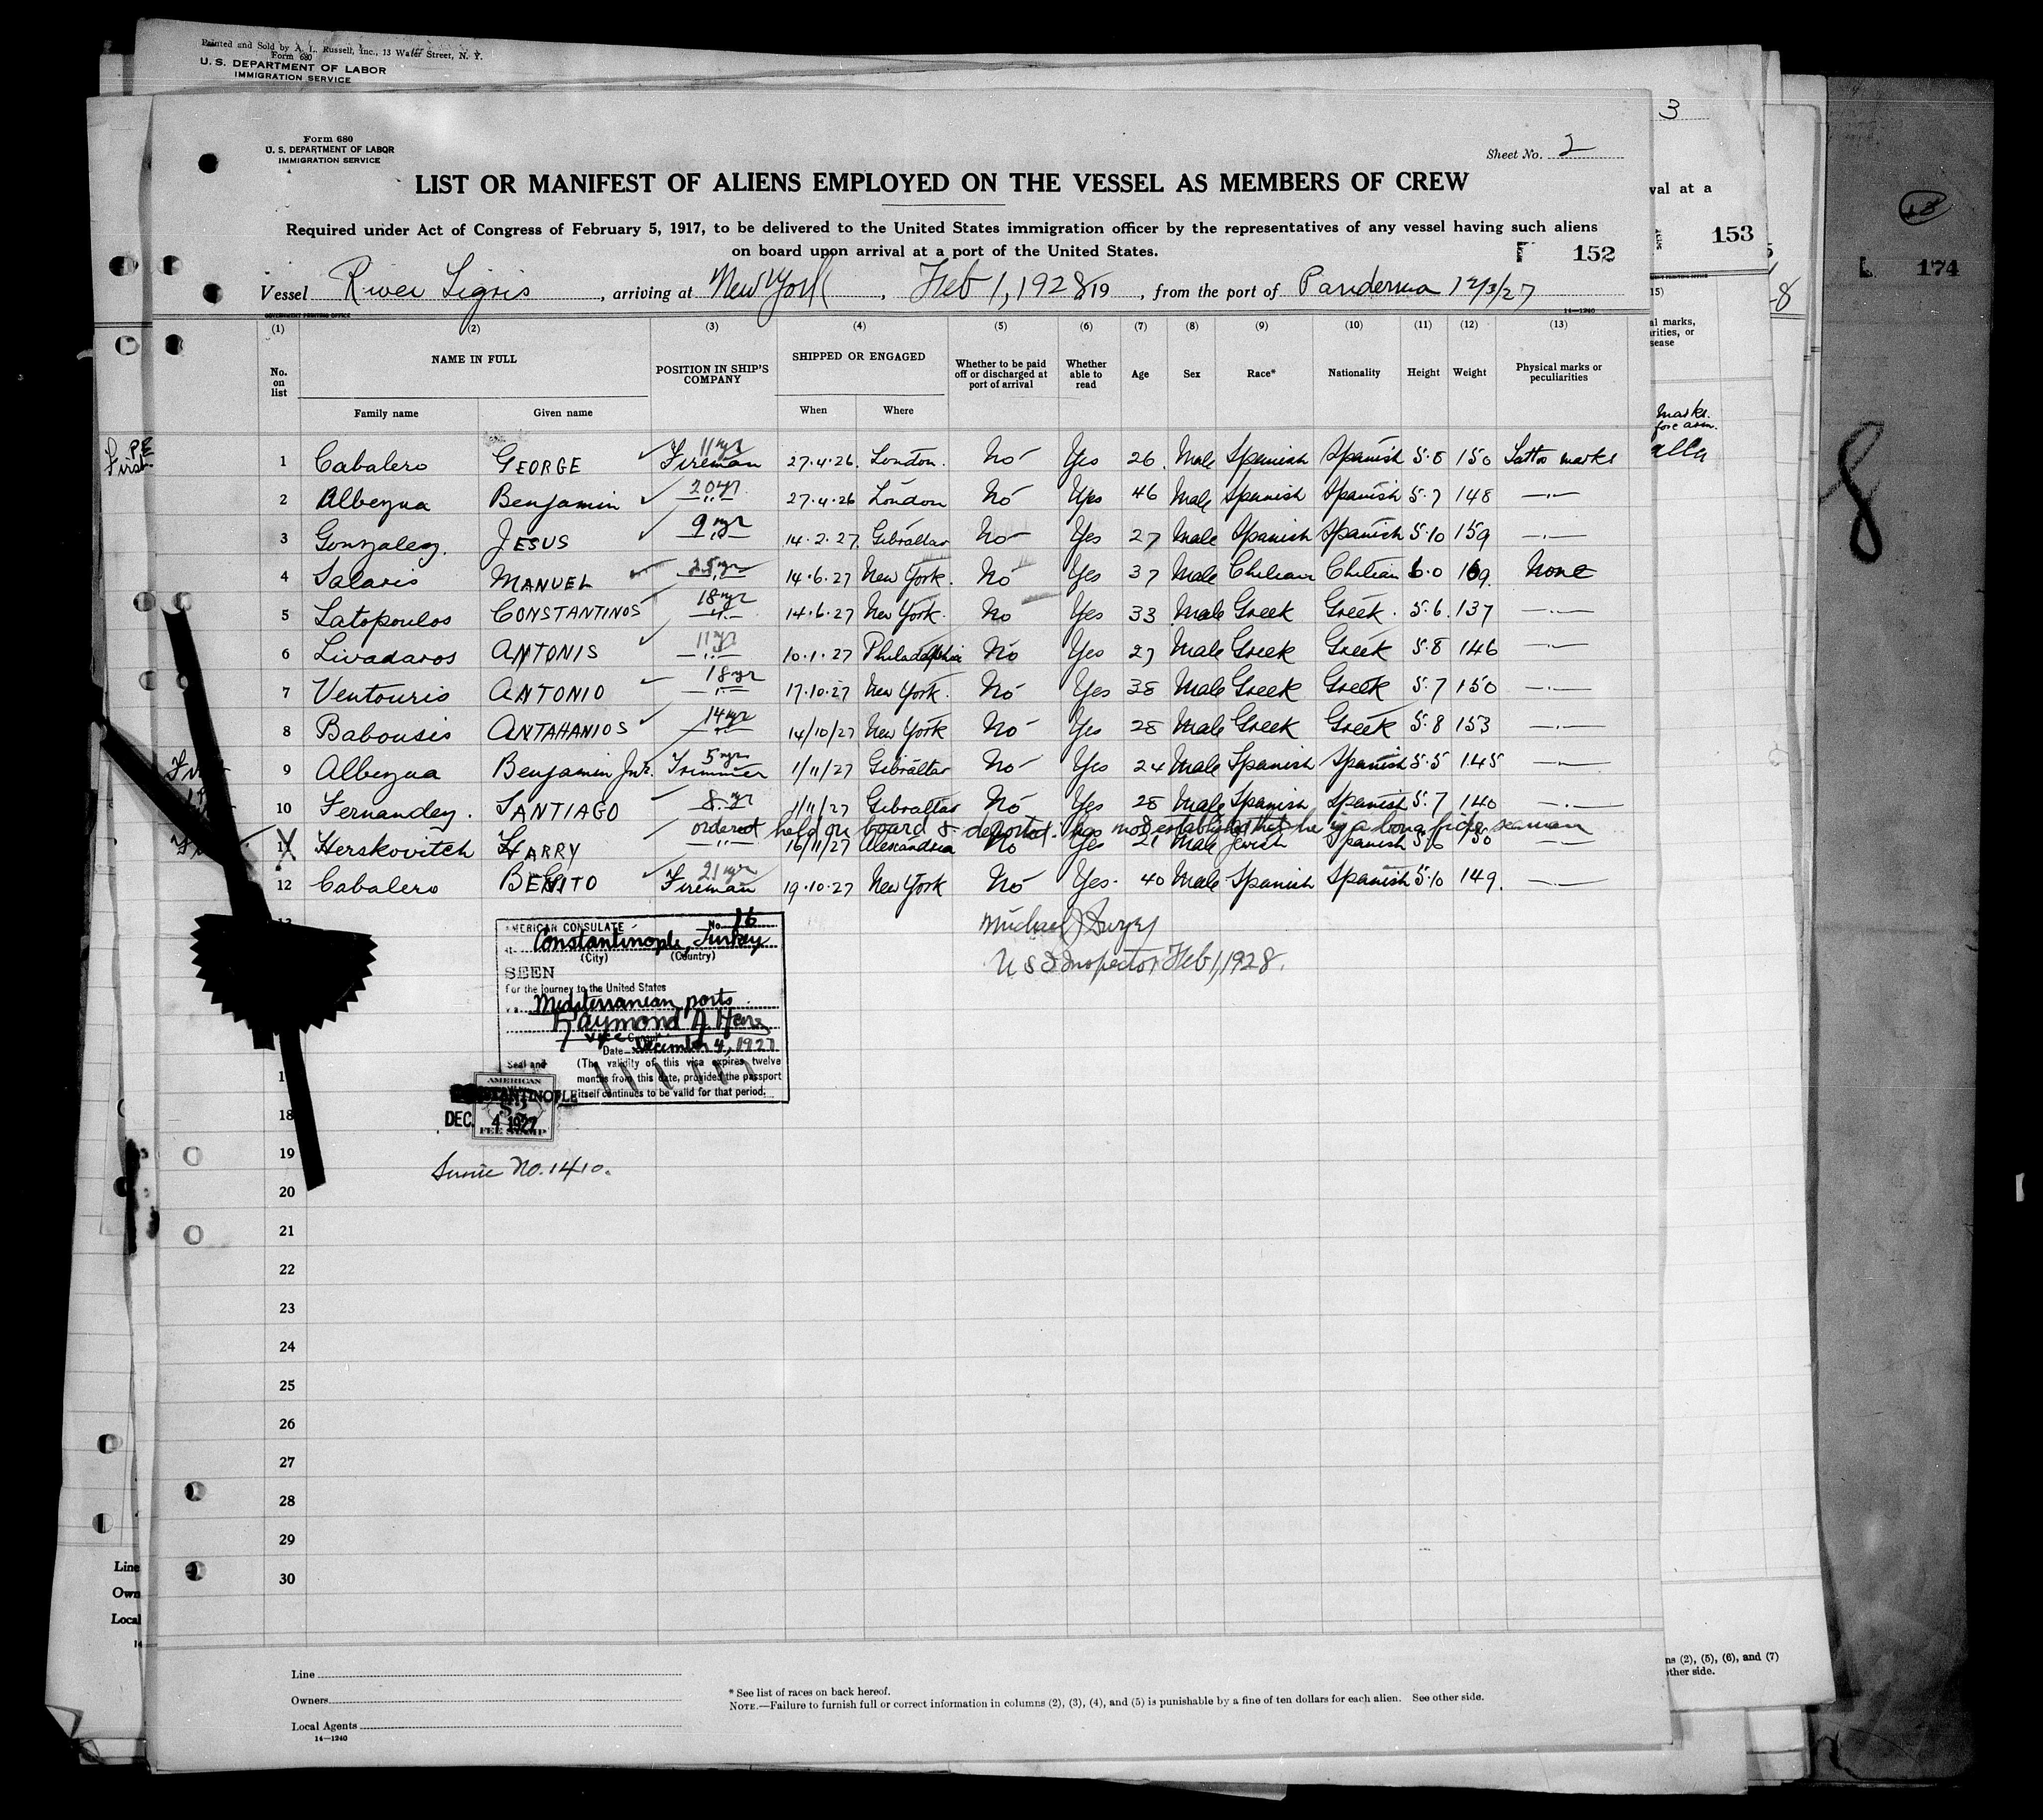 Printed and Sold by A. L. Russell, Inc., 13 Water Street, N. Y.
Form 680
U. S. DEPARTMENT OF LABOR
IMMIGRATION SERVICE
3
Form 680
U. S. DEPARTMENT OF LABOR
IMMIGRATION SERVICE
Sheet No. 2
LIST OR MANIFEST OF ALIENS EMPLOYED ON THE VESSEL AS MEMBERS OF CREW
val at a
Required under Act of Congress of February 5, 1917, to be delivered to the United States immigration officer by the representatives of any vessel having such aliens
on board upon arrival at a port of the United States.
152
153
174
Vessel River Tigris, arriving at New York, Feb 1, 1928 19, from the port of Panderma 12/3/27
GOVERNMENT PRINTING OFFICE
14—1240
(1) (2) (3) (4) (5) (6) (7) (8) (9) (10) (11) (12) (13)
No. on list
NAME IN FULL
Family name
Given name
POSITION IN SHIP'S COMPANY
SHIPPED OR ENGAGED
When
Where
Whether to be paid off or discharged at port of arrival
Whether able to read
Age
Sex
Race*
Nationality
Height
Weight
Physical marks or peculiarities
8
1 Cabalero GEORGE 11 yr Fireman 27.4.26. London. No Yes 26. Male Spanish Spanish 5.8 150 Tatto marks
2 Albezua Benjamin 20 yr —"— 27.4.26 London No Yes 46 Male Spanish Spanish 5.7 148 —"—
3 Gonzalez. JESUS 9 yr —"— 14.2.27. Gibraltar No Yes 27 Male Spanish Spanish 5.10 159 —"—
4 Salaris MANUEL 25 yr —"— 14.6.27 New York. No Yes 37 Male Chilian Chilian 6.0 169. None
5 Latopoulos CONSTANTINOS 18 yr —"— 14.6.27 New York. No Yes 33 Male Greek Greek. 5.6. 137 —"—
6 Livadaros ANTONIS 11 yr —"— 10.1.27 Philadelphia No Yes 27 Male Greek Greek 5.8 146 —"—
7 Ventouris ANTONIO 18 yr —"— 17.10.27 New York. No Yes 38 Male Greek Greek 5.7 150 —"—
8 Babousis ANTAHANIOS 14 yr —"— 14/10/27 New York No Yes 28 Male Greek Greek 5.8 153 —"—
9 Albezua Benjamin Jnr. 5 yr Trimmer 1/11/27 Gibraltar No Yes 24 Male Spanish Spanish 5.5 145 —"—
10 Fernandez. SANTIAGO 8 yr 1/11/27 Gibraltar No Yes 28 Male Spanish Spanish 5.7 140 —"—
ordered held on board & deported. has not established that he is a bona fide seaman
11 Herskovitch HARRY —"— 16/11/27 Alexandria No Yes 21 Male Jewish Spanish 5.6 150 —"—
12 Cabalero BENITO 21 yr Fireman 19.10.27 New York No Yes. 40 Male Spanish Spanish 5.10 149. —"—
AMERICAN CONSULATE No. 16
Constantinople, Turkey
(City) (Country)
SEEN
for the journey to the United States
via Mediterranean ports
Raymond A. Hare
Vice Consul
Date December 4, 1927
Seal and
(The validity of this visa expires twelve
months from this date, provided the passport
itself continues to be valid for that period.
AMERICAN
CONSTANTINOPLE
$2
DEC. 4 1927
FEE STAMP
U S I Inspector Feb 1, 1928.
18
19
Service No. 1410.
20
21
22
23
24
25
26
27
28
29
30
Line
Owners
Local Agents
14—1240
* See list of races on back hereof.
NOTE.—Failure to furnish full or correct information in columns (2), (3), (4), and (5) is punishable by a fine of ten dollars for each alien. See other side.
ns (2), (5), (6), and (7)
other side.